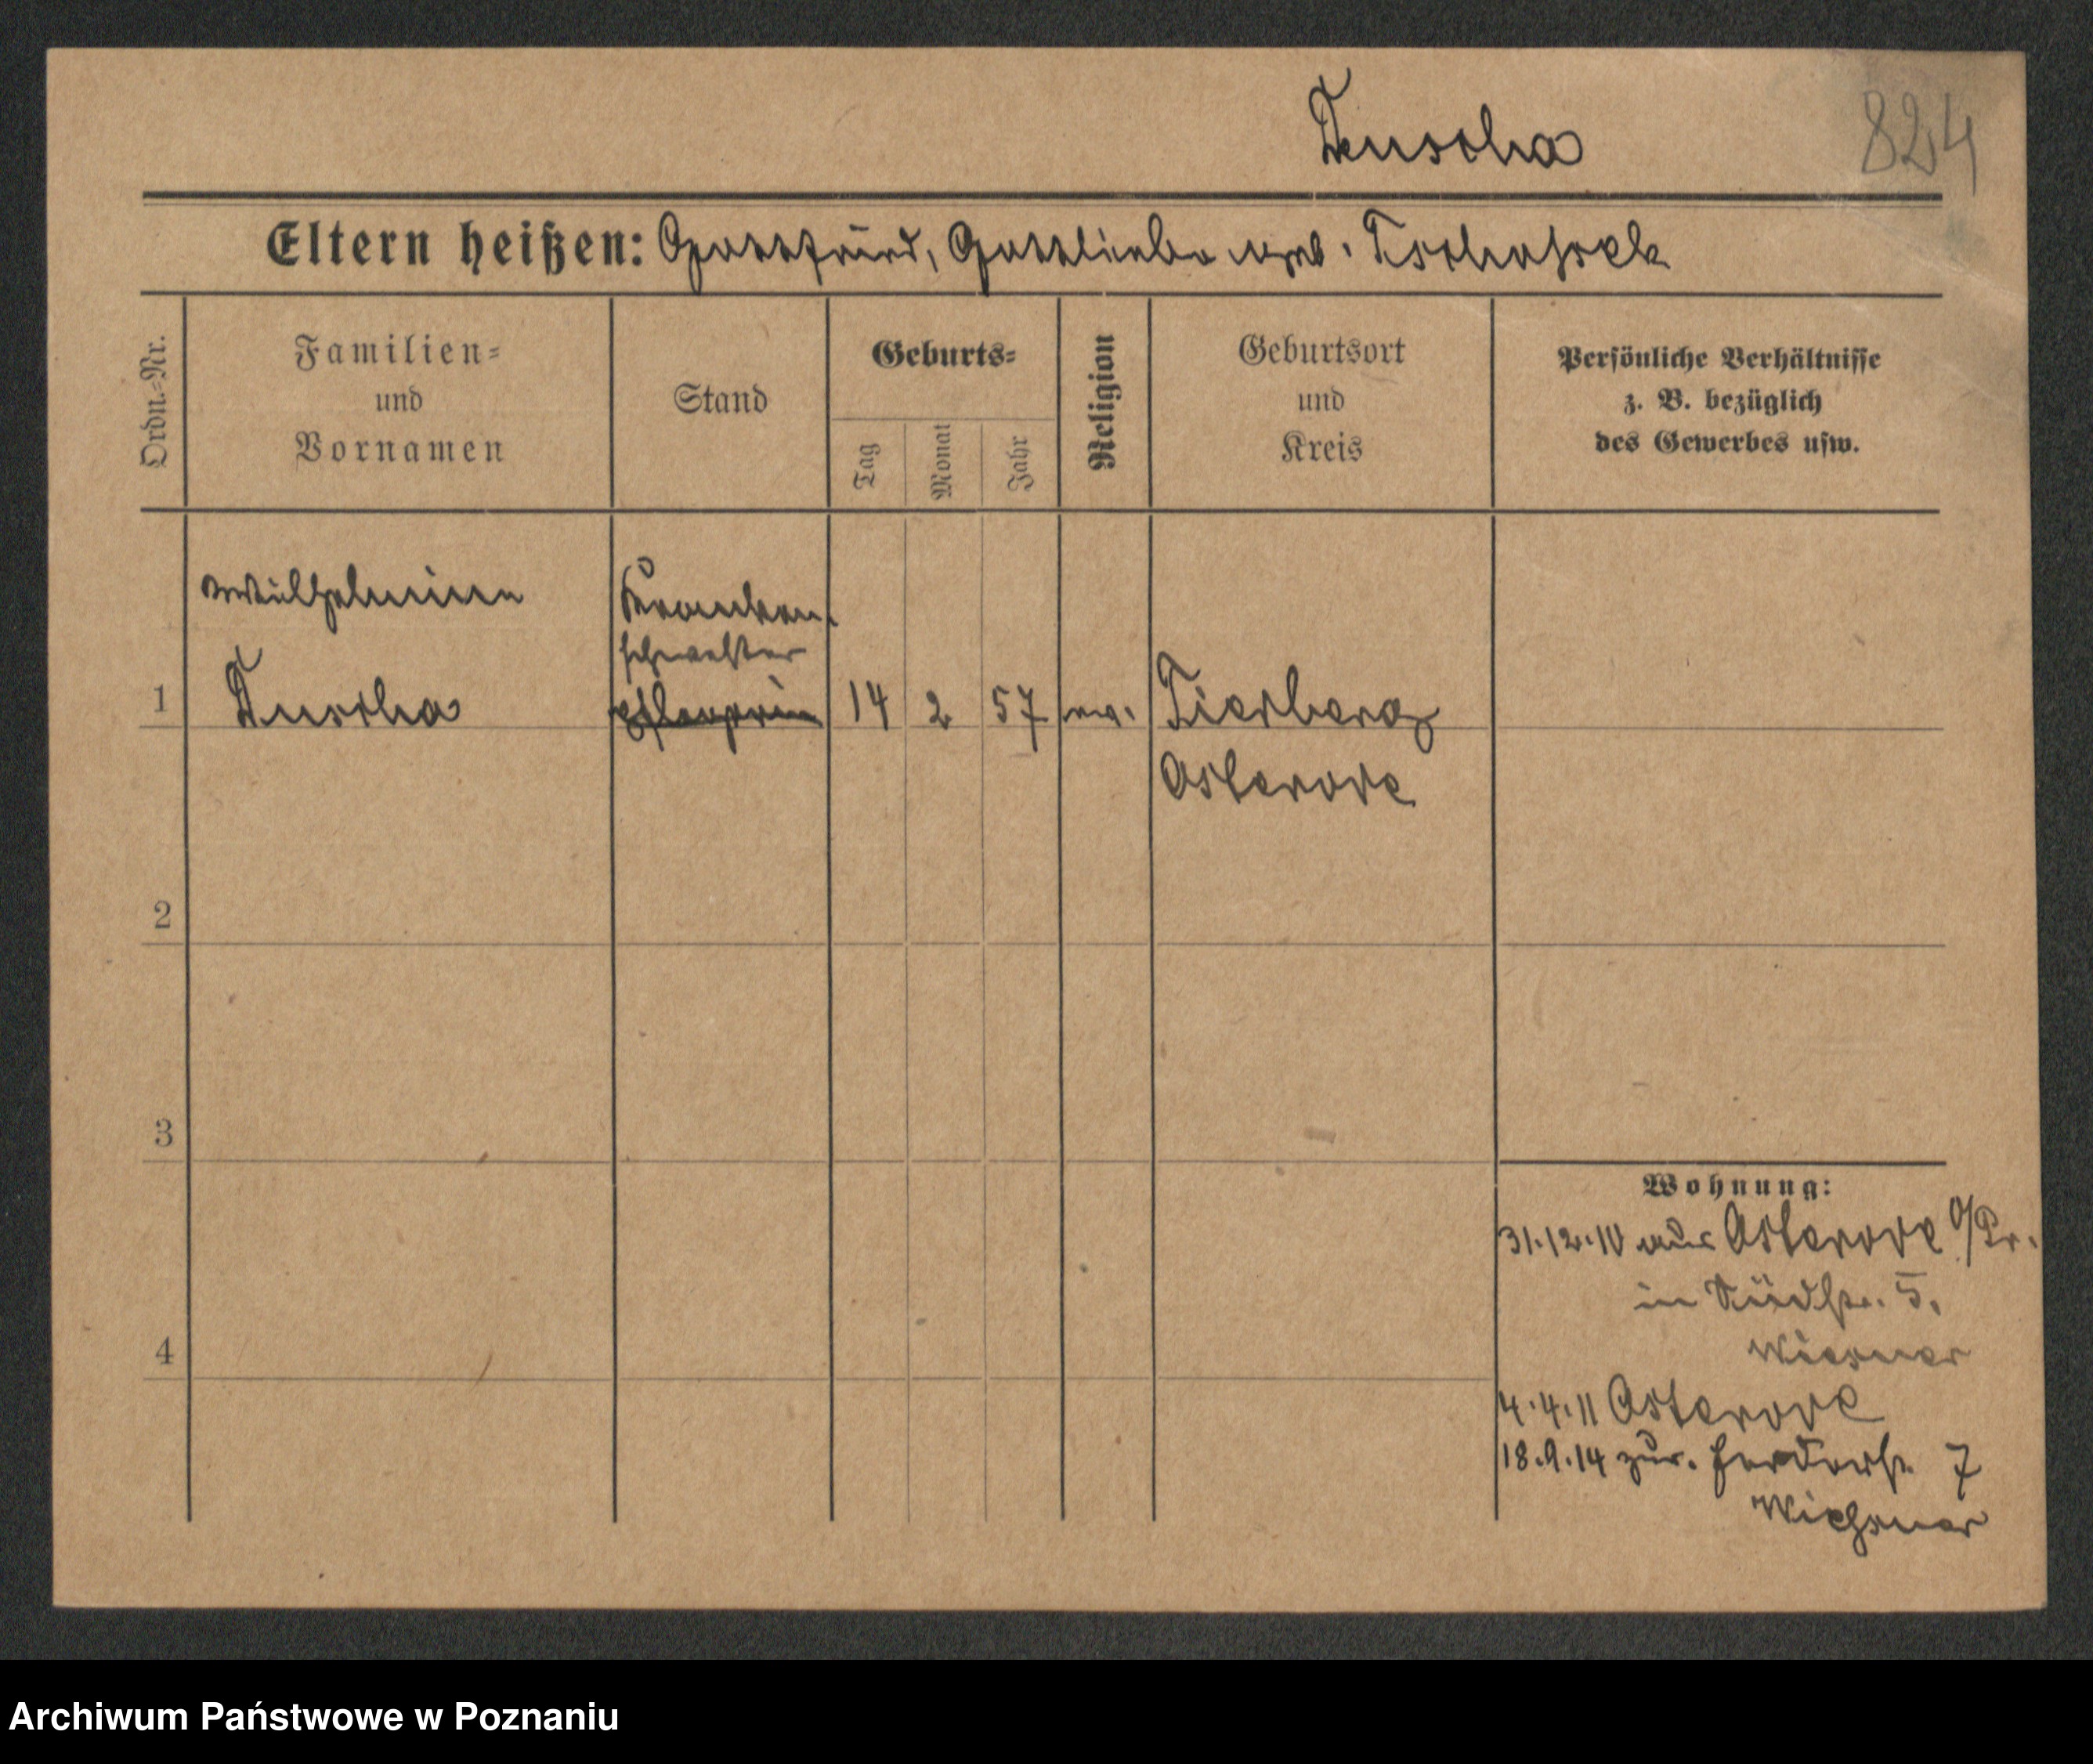 824
Eltern heißen: Gottfried, Gottliebe geb. Tschoseck
Ordn.-Nr.
Familien-
und
Vornamen
Stand
Geburts-
Tag
Monat
Jahr
Religion
Geburtsort
und
Kreis
Persönliche Verhältnisse
z. B. bezüglich
des Gewerbes usw.
Wilhelmine
Kranken
schwester
1 14 2 57 ev. Tierberg
Osterode
2
3
4
Wohnung:
31.12.10 aus Osterode O/Pr.
in Südstr. 5.
Wiesner
4.4.11 Osterode
18.9.14 zur. Herderstr. 7
Wiesner
Archiwum Państwowe w Poznaniu